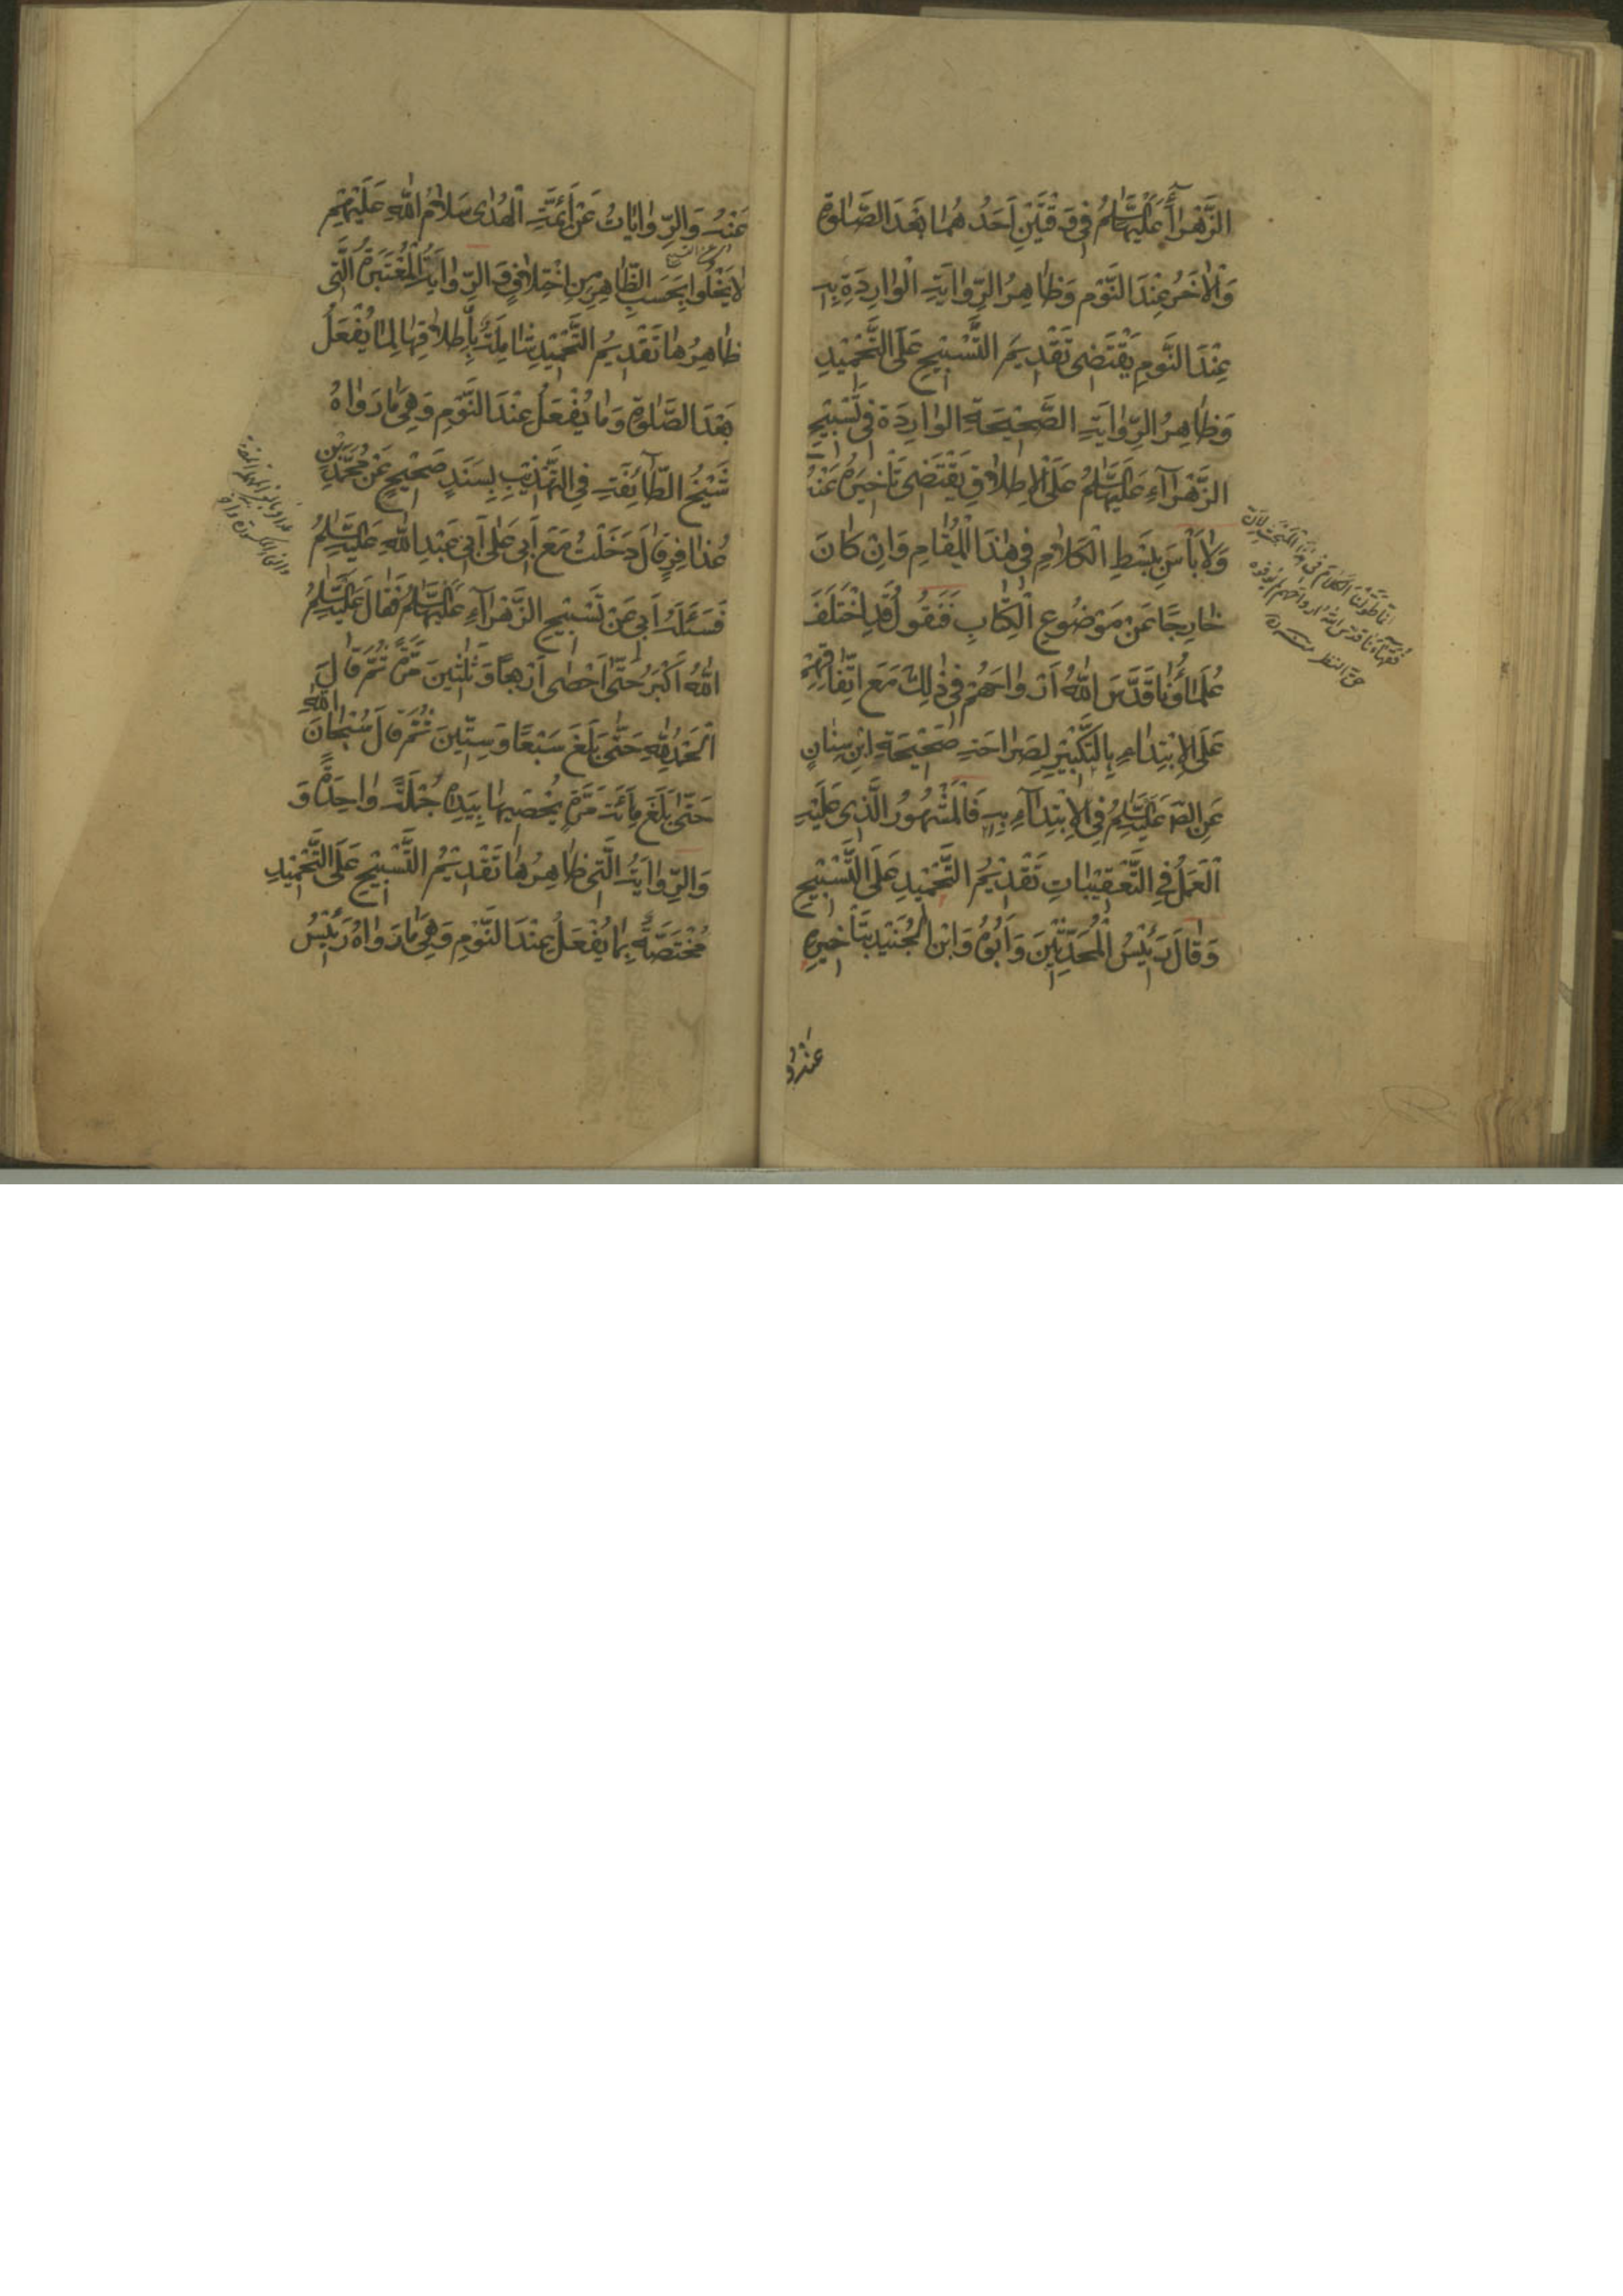 الزَّهْرَاءِ عَلَيْهَا السَّلٰمُ فِى وَقْتَيْنِ اَحَدُهُمٰا بَعْدَ الصَّلٰوةِ
وَالْاٰخَرُ عِنْدَ النَّوْمِ وَظٰاهِرُ الرِّوٰايَةِ الْوٰارِدَةِ بِهِ
عِنْدَ النَّوْمِ يَقْتَضِى تَقْدِيمَ التَّسْبِيْحِ عَلَى التَّحْمِيْدِ
وَظٰاهِرُ الرِّوٰايَةِ الصَّحِيْحَةِ الوٰارِدَةِ فِى تَسْبِيْحِ
الزَّهْرَآءِ عَلَيْهَا السَّلٰمُ عَلَى الْاِطْلٰاقِ يَقْتَضِى تَأْخِيرَهُ عَنْهُ
وَلٰا بَأْسَ بِبَسْطِ الْكَلٰامِ فِى هٰذَا الْمَقٰامِ وَاِنْ كٰانَ
خٰارِجًا عَنْ مَوْضُوعِ الْكِتٰابِ فَنَقُولُ قَدِ اخْتَلَفَ
عُلَمٰاؤُنٰا قَدَّسَ اللّٰهُ اَرْوٰاحَهُمْ فِى ذٰلِكَ مَعَ اتِّفٰاقِهِمْ
عَلَى الْاِبْتِدٰاءِ بِالتَّكْبِيْرِ لِصَرٰاحَةِ صَحِيْحَةِ ابْنِ سِنٰانٍ
عَنِ الصّٰ عَلَيْهِ السَّلٰمُ فِى الْاِبْتِدٰآءِ بِهِ فَالْمَشْهُورُ الَّذِى عَلَيْهِ
الْعَمَلُ فِى التَّعْقِيْبٰاتِ تَقْدِيْمُ التَّحْمِيْدِ عَلَى التَّسْبِيْحِ
وَقٰالَ رَئِيْسُ الْمُحَدِّثِيْنَ وَاَبُوْهُ وَابْنُ الْجُنَيْدِ بِتَأْخِيرِهِ
عَنْهُ وَ
انّما طوّلنا الكلام فى هذا المبحث لانّ
فقهآءنا قدّس اللّه ارواحهم لم يوفوه
حقّ النظر منه
عَنْهُ وَالرِّوٰايٰاتُ عَنْ اَئِمَّةِ الْهُدٰى سَلٰامُ اللّٰهِ عَلَيْهِمْ
لٰا يَخْلُوا بِحَسَبِ الظّٰاهِرِ مِنِ اخْتِلٰافٍ وَ الرِّوٰايَةُ الْمُعْتَبَرَةُ الَّتِى
ظٰاهِرُهٰا تَقْدِيمُ التَّحْمِيْدِ شٰامِلَةٌ بِاِطْلٰاقِهٰا لِمٰا يُفْعَلُ
بَعْدَ الصَّلٰوةِ وَمٰا يُفْعَلُ عِنْدَ النَّوْمِ وَهِىَ مٰا رَوٰاهُ
شَيْخُ الطّٰآئِفَةِ فِى التَّهْذِيْبِ بِسَنَدٍ صَحِيْحٍ عَنْ مُحَمَّدِ بْنِ
عُذٰافِرٍ قٰالَ دَخَلْتُ مَعَ اَبِى عَلٰى اَبِى عَبْدِ اللّٰهِ عَلَيْهِ السَّلٰمُ
فَسَئَلَهُ اَبِى عَنْ تَسْبِيْحِ الزَّهْرَآءِ عَلَيْهَا السَّلٰمُ فَقٰالَ عَلَيْهِ السَّلٰمُ
اَللّٰهُ اَكْبَرُ حَتّٰى اَحْصٰى اَرْبَعًا وَثَلٰثِينَ مَرَّةً ثُمَّ قٰالَ
اَلْحَمْدُ لِلّٰهِ حَتّٰى بَلَغَ سَبْعًا وَسِتِّيْنَ ثُمَّ قٰالَ سُبْحٰانَ اللّٰهِ
حَتّٰى بَلَغَ مِأَئَةَ مَرَّةٍ يُحْصِيهٰا بِيَدِهِ جُمْلَةً وٰاحِدَةً وَ
وَالرِّوٰايَةُ الَّتِى ظٰاهِرُهٰا تَقْدِيْمُ التَّسْبِيْحِ عَلَى التَّحْمِيْدِ
مُخْتَصَّةٌ بِمٰا يُفْعَلُ عِنْدَ النَّوْمِ وَهِىَ مٰا رَوٰاهُ رَئِيْسُ